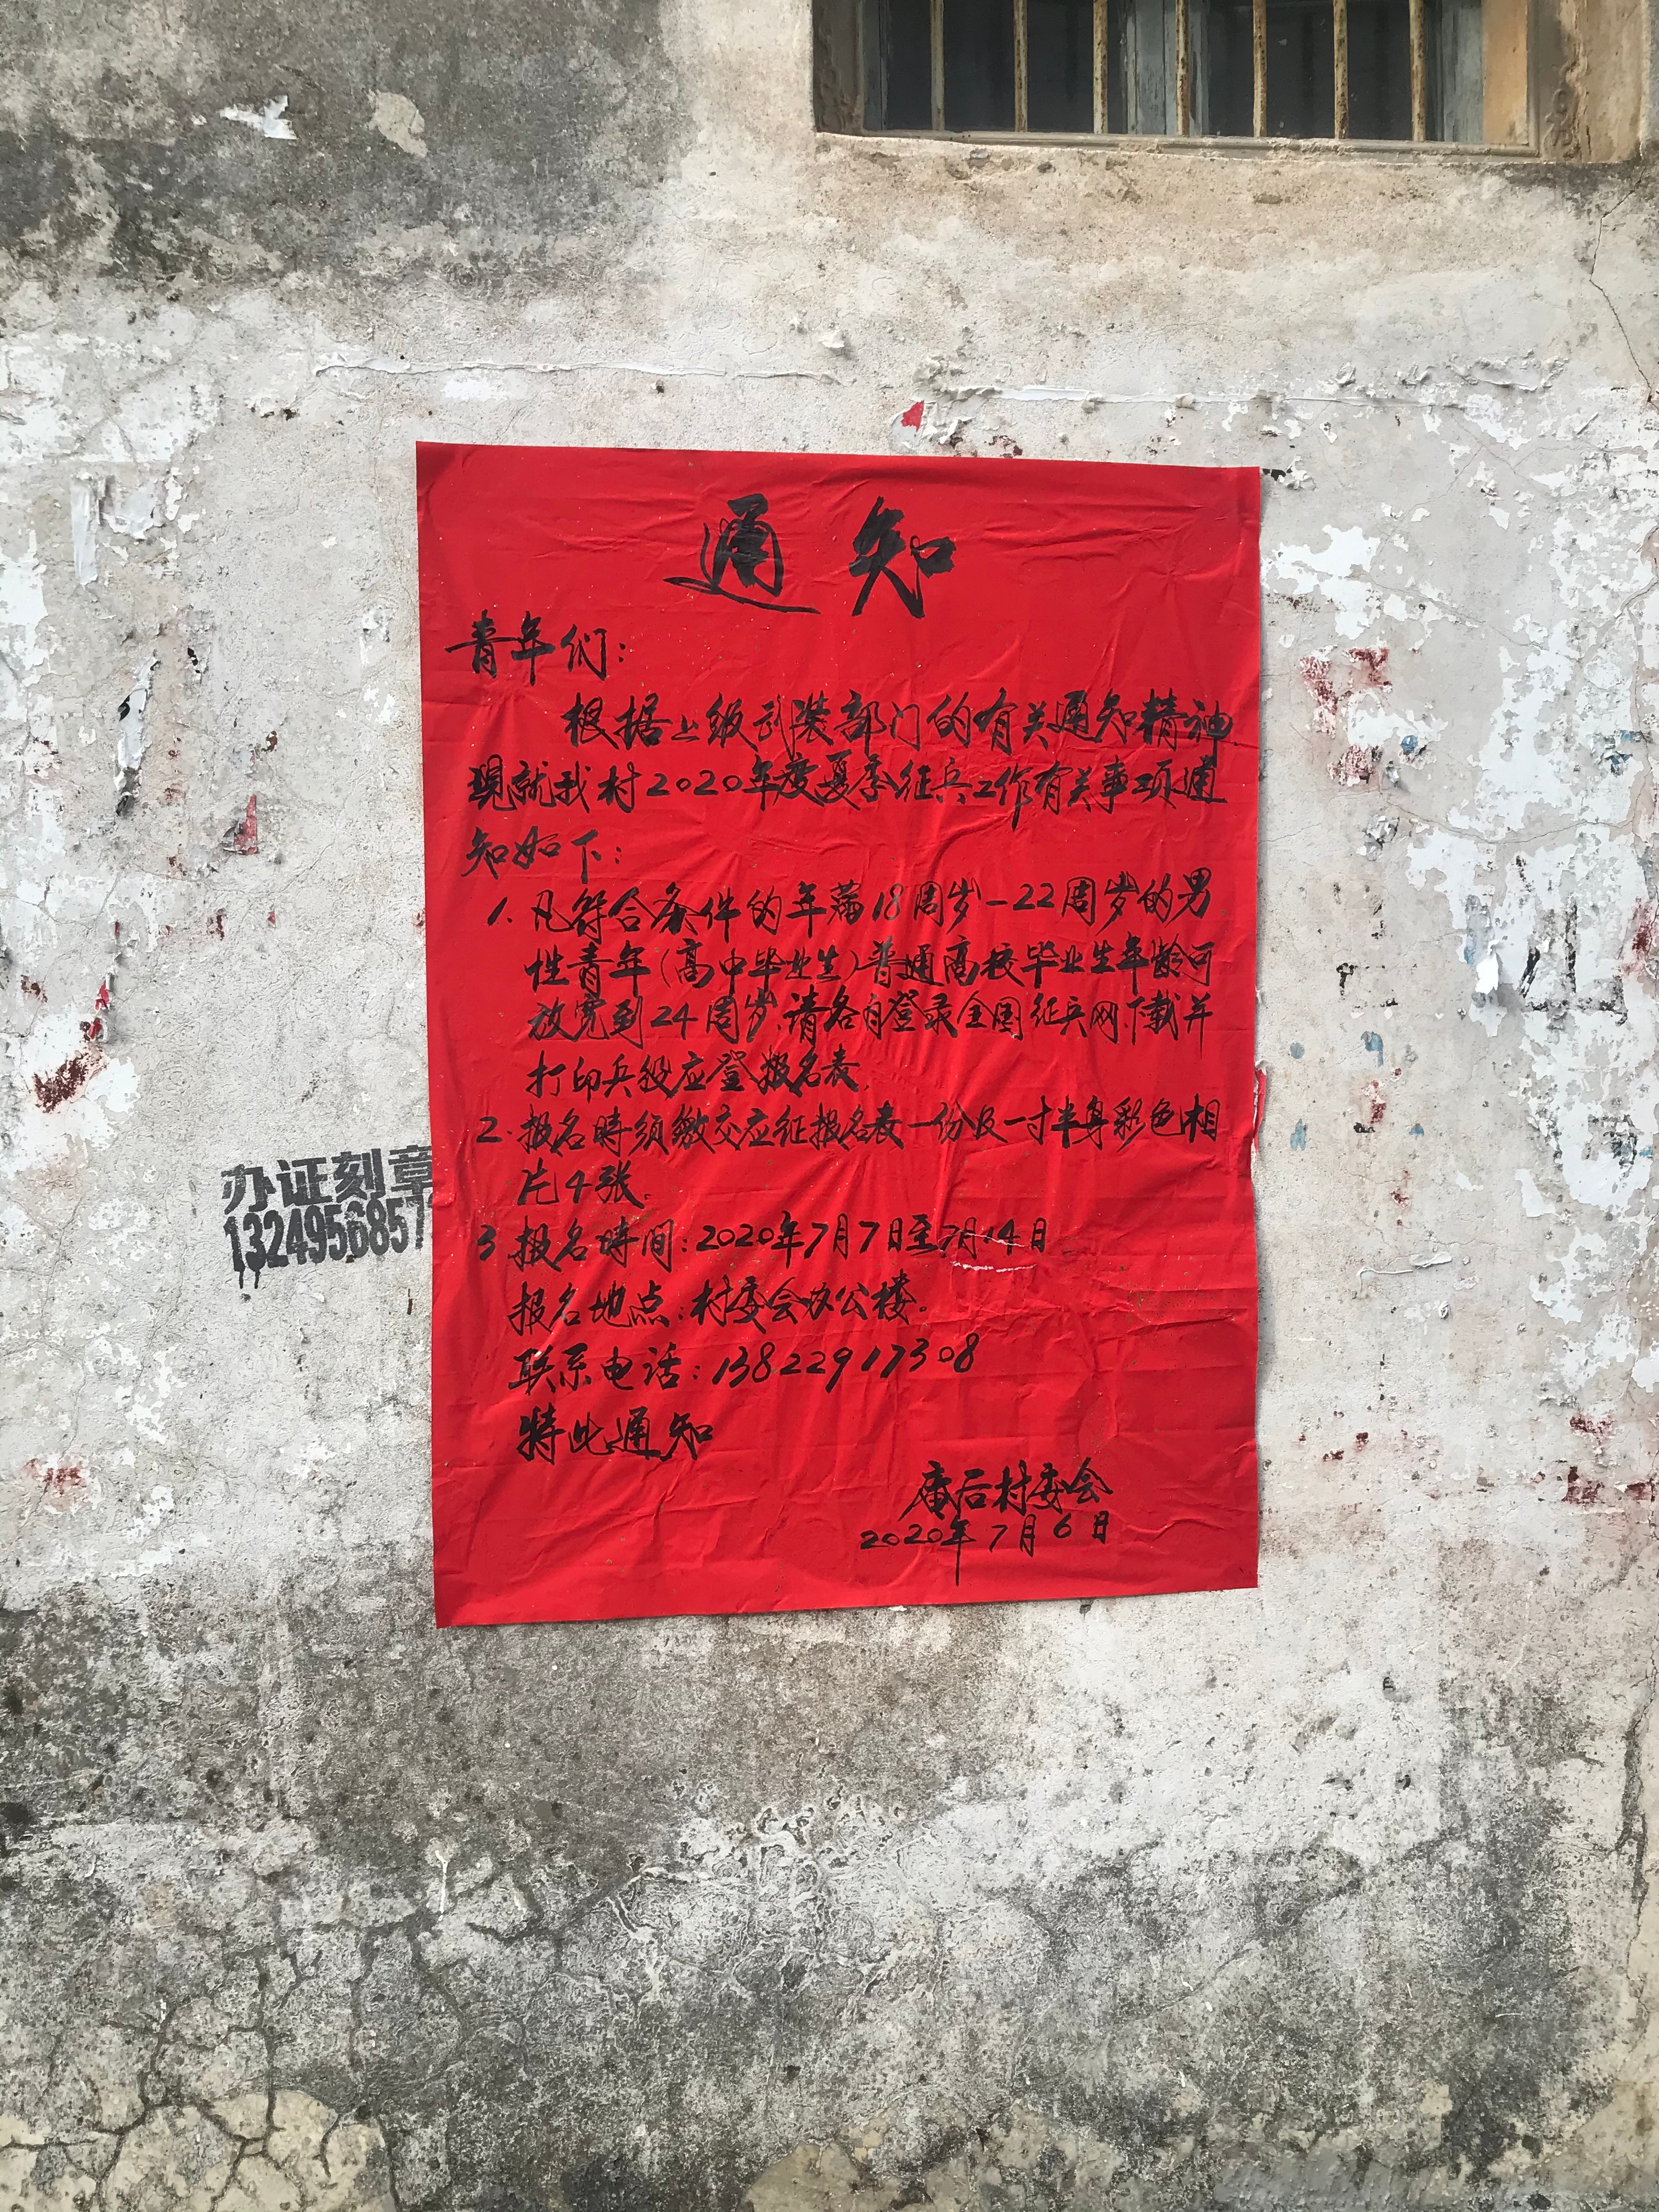 通知
青年们：
根据上级武装部门的有关通知精神
现就我村2020年度夏季征兵工作有关事项通
知如下：
1. 凡符合条件的年满18周岁－22周岁的男
性青年（高中毕业生）普通高校毕业生年龄可
放宽到24周岁，请各自登录全国征兵网下载并
打印兵役应登报名表，
2. 报名時须缴交应征报名表一份及一寸半身彩色相
片4张。
3 报名時间：2020年7月7日至7月14日
报名地点：村委会办公楼。
联系电话：13822917308
特此通知
庵后村委会
2020年7月6日
办证刻章
1324956857